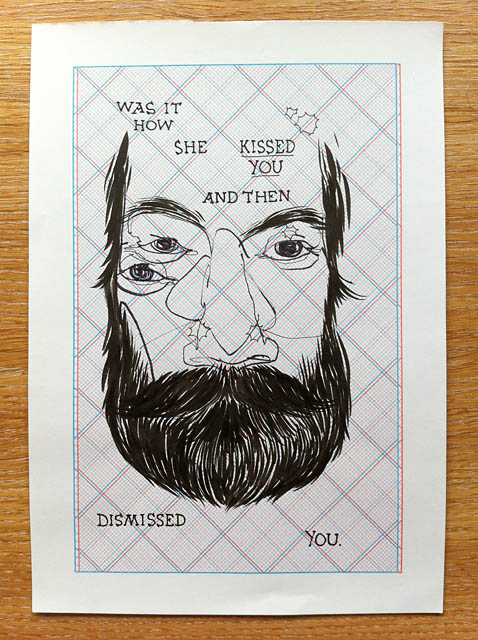 WAS IT
HOW
SHE KISSED
YOU
AND THEN
DISMISSED
YOU.